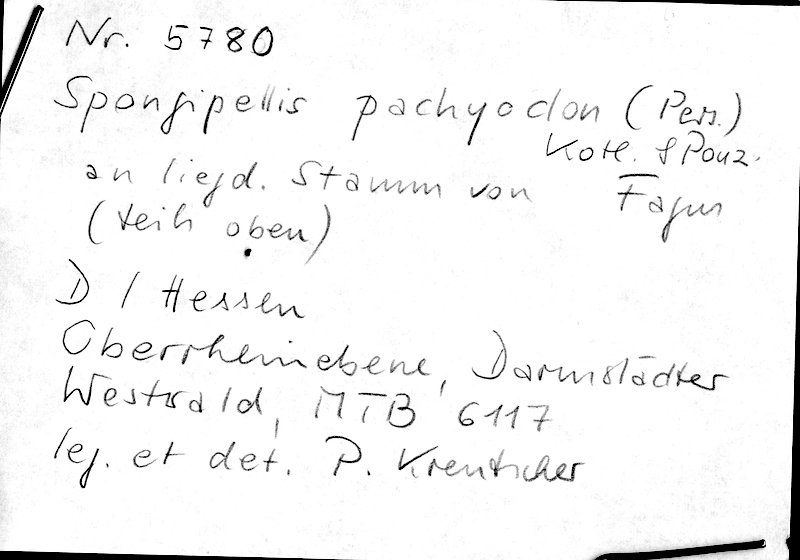 Nr. 5780
Spongipellis pachyodon (Pers.)
Kotl. & Pouz.
an liegd. Stamm von Fagus
(teils oben)
D / Hessen
Oberrheinebene, Darmstädter
Westwald, MTB 6117
leg. et det. P.